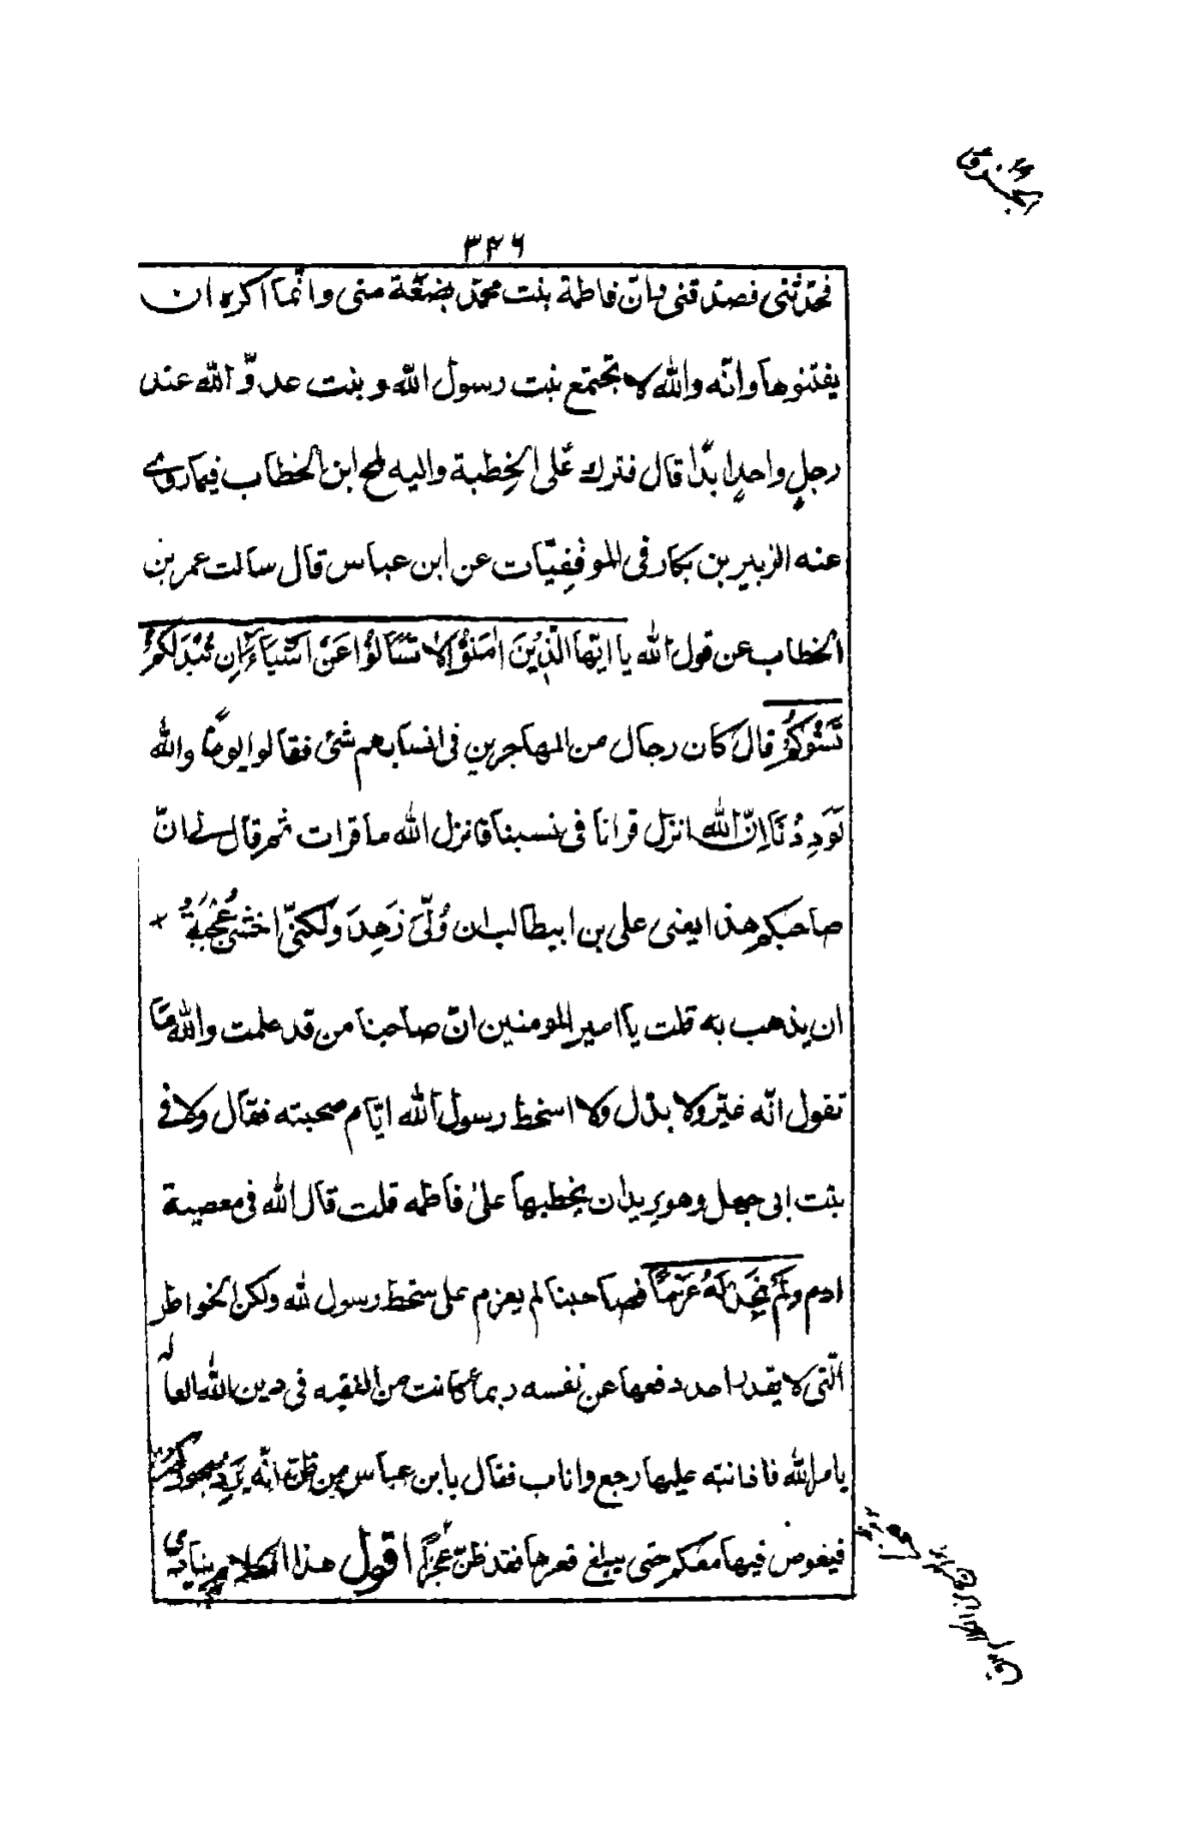 ۳۴۶
فحدّثنی فصدقنی وانّ فاطمة بنت محمّد بضعّة منی وانّما اکره ان
یفتنوها وانّه والله لا تجتمع بنت رسول الله و بنت عدوّ الله عند
رجلٍ واحدٍ ابدًا قال فترك علّی الخِطبة والیه لمح ابن الخطاب فیما روی
عنه الزبیر بن بکار فی الموفِقیّات عن ابن عباس قال سالت عمر بن
الخطاب عن قول الله یا ایّها الّذِیْنَ اٰمَنُوْا لا تَسْاَلُوْا عَنْ اَشْیَآءَ اِن تُبْدَ لَکُمْ
تَسُؤکُمْ قال کان رجال من المهاجرین فی انسابهم شئ فقالوا یومًا والله
لَوَدِدْنَا اِنّ الله انزل قرانا فی نسبنا فانزل الله ما قرات ثم قال لی انّ
صاحبکم هذا یعنی علی بن ابیطالب ان وُلّیَ زَهِدَ ولکنّی اخشیٰ عُجْبَهُ
ان یذهب به قلت یا امیر المومنین انّ صاحبنا من قد علمت والله ما
نقول انّه غیّر ولا بدّل ولا اسخط رسول الله ایّام صحبته فقال ولا فی
بنت ابی جهل وهو یرید ان یخطبها علیٰ فاطمه قلت قال الله فی معصیة
ادم وَلَمْ نَجِدْ لَهُ عَزْمًا فصاحبنا لم یعزم علی سخط رسول الله ولکن الخواطر
الّتی لا یقدر احد دفعها عن نفسه ربما کانت من الفقیه فی دین الله العالم
بامر الله فاذا نبّه علیها رجع واناب فقال یا بن عباس من ظنّ انّه یَرِدُ بحورکم
فیغوص فیها معکم حتی یبلغ قعرها فقد ظنّ عجزًا اقول هذا الکلام ینادی